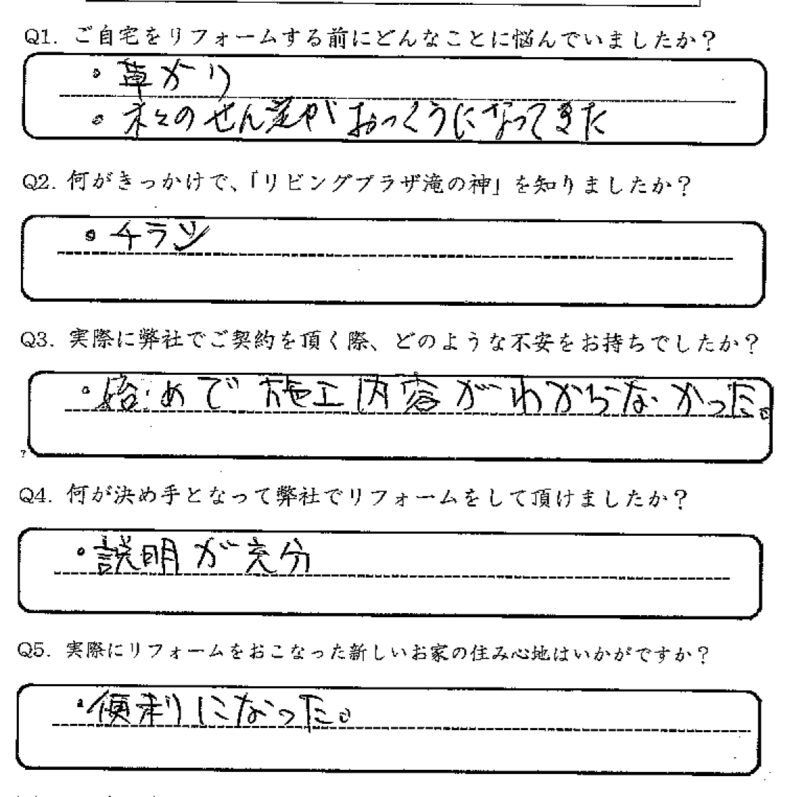 Q1. ご自宅をリフォームする前にどんなことに悩んでいましたか?
・草かり
・木々のせん定がおっくうになってきた
Q2. 何がきっかけで、「リビングプラザ滝の神」を知りましたか?
・チラシ
Q3. 実際に弊社でご契約を頂く際、どのような不安をお持ちでしたか?
・始めで施工内容がわからなかった。
Q4. 何が決め手となって弊社でリフォームをして頂けましたか?
・説明が充分
Q5. 実際にリフォームをおこなった新しいお家の住み心地はいかがですか?
・便利になった。